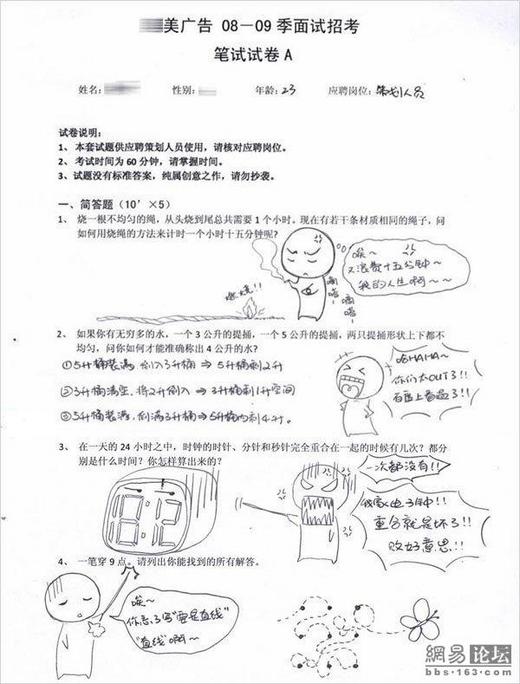 美广告 08－09 季面试招考
笔试试卷 A
姓名：
性别：
年龄：23
应聘岗位：策划人员
试卷说明：
1、 本套试题供应聘策划人员使用，请核对应聘岗位。
2、 考试时间为 60 分钟，请掌握时间。
3、 试题没有标准答案，纯属创意之作，请勿抄袭。
一、简答题（10’×5）
1、 烧一根不均匀的绳，从头烧到尾总共需要 1 个小时。现在有若干条材质相同的绳子，问
如何用烧绳的方法来计时一个小时十五分钟呢？
唉~
又浪费十五分钟
我的人生啊~
滴嗒
滴嗒
燃烧!!
2、 如果你有无穷多的水，一个 3 公升的提捅，一个 5 公升的提捅，两只提捅形状上下都不
均匀，问你如何才能准确称出 4 公升的水？
①5升桶装满，倒入3升桶 ⇒ 5升桶剩2升
②3升桶清空，将2升倒入 ⇒ 3升桶剩1升空间
③5升桶装满，倒满3升桶 ⇒ 5升桶内剩4升。
HAHA~
你们太OUT了!!
3、 在一天的 24 小时之中，时钟的时针、分针和秒针完全重合在一起的时候有几次？都分
别是什么时间？你怎样算出来的？
一次都没有!!
电子钟!!
重合就是坏了!!
败好意思!!
18:12
4、 一笔穿 9 点。请列出你能找到的所有解答。
唉~
你忘了写"要是直线"
"直线"啊~
網易 论坛
bbs·163.com